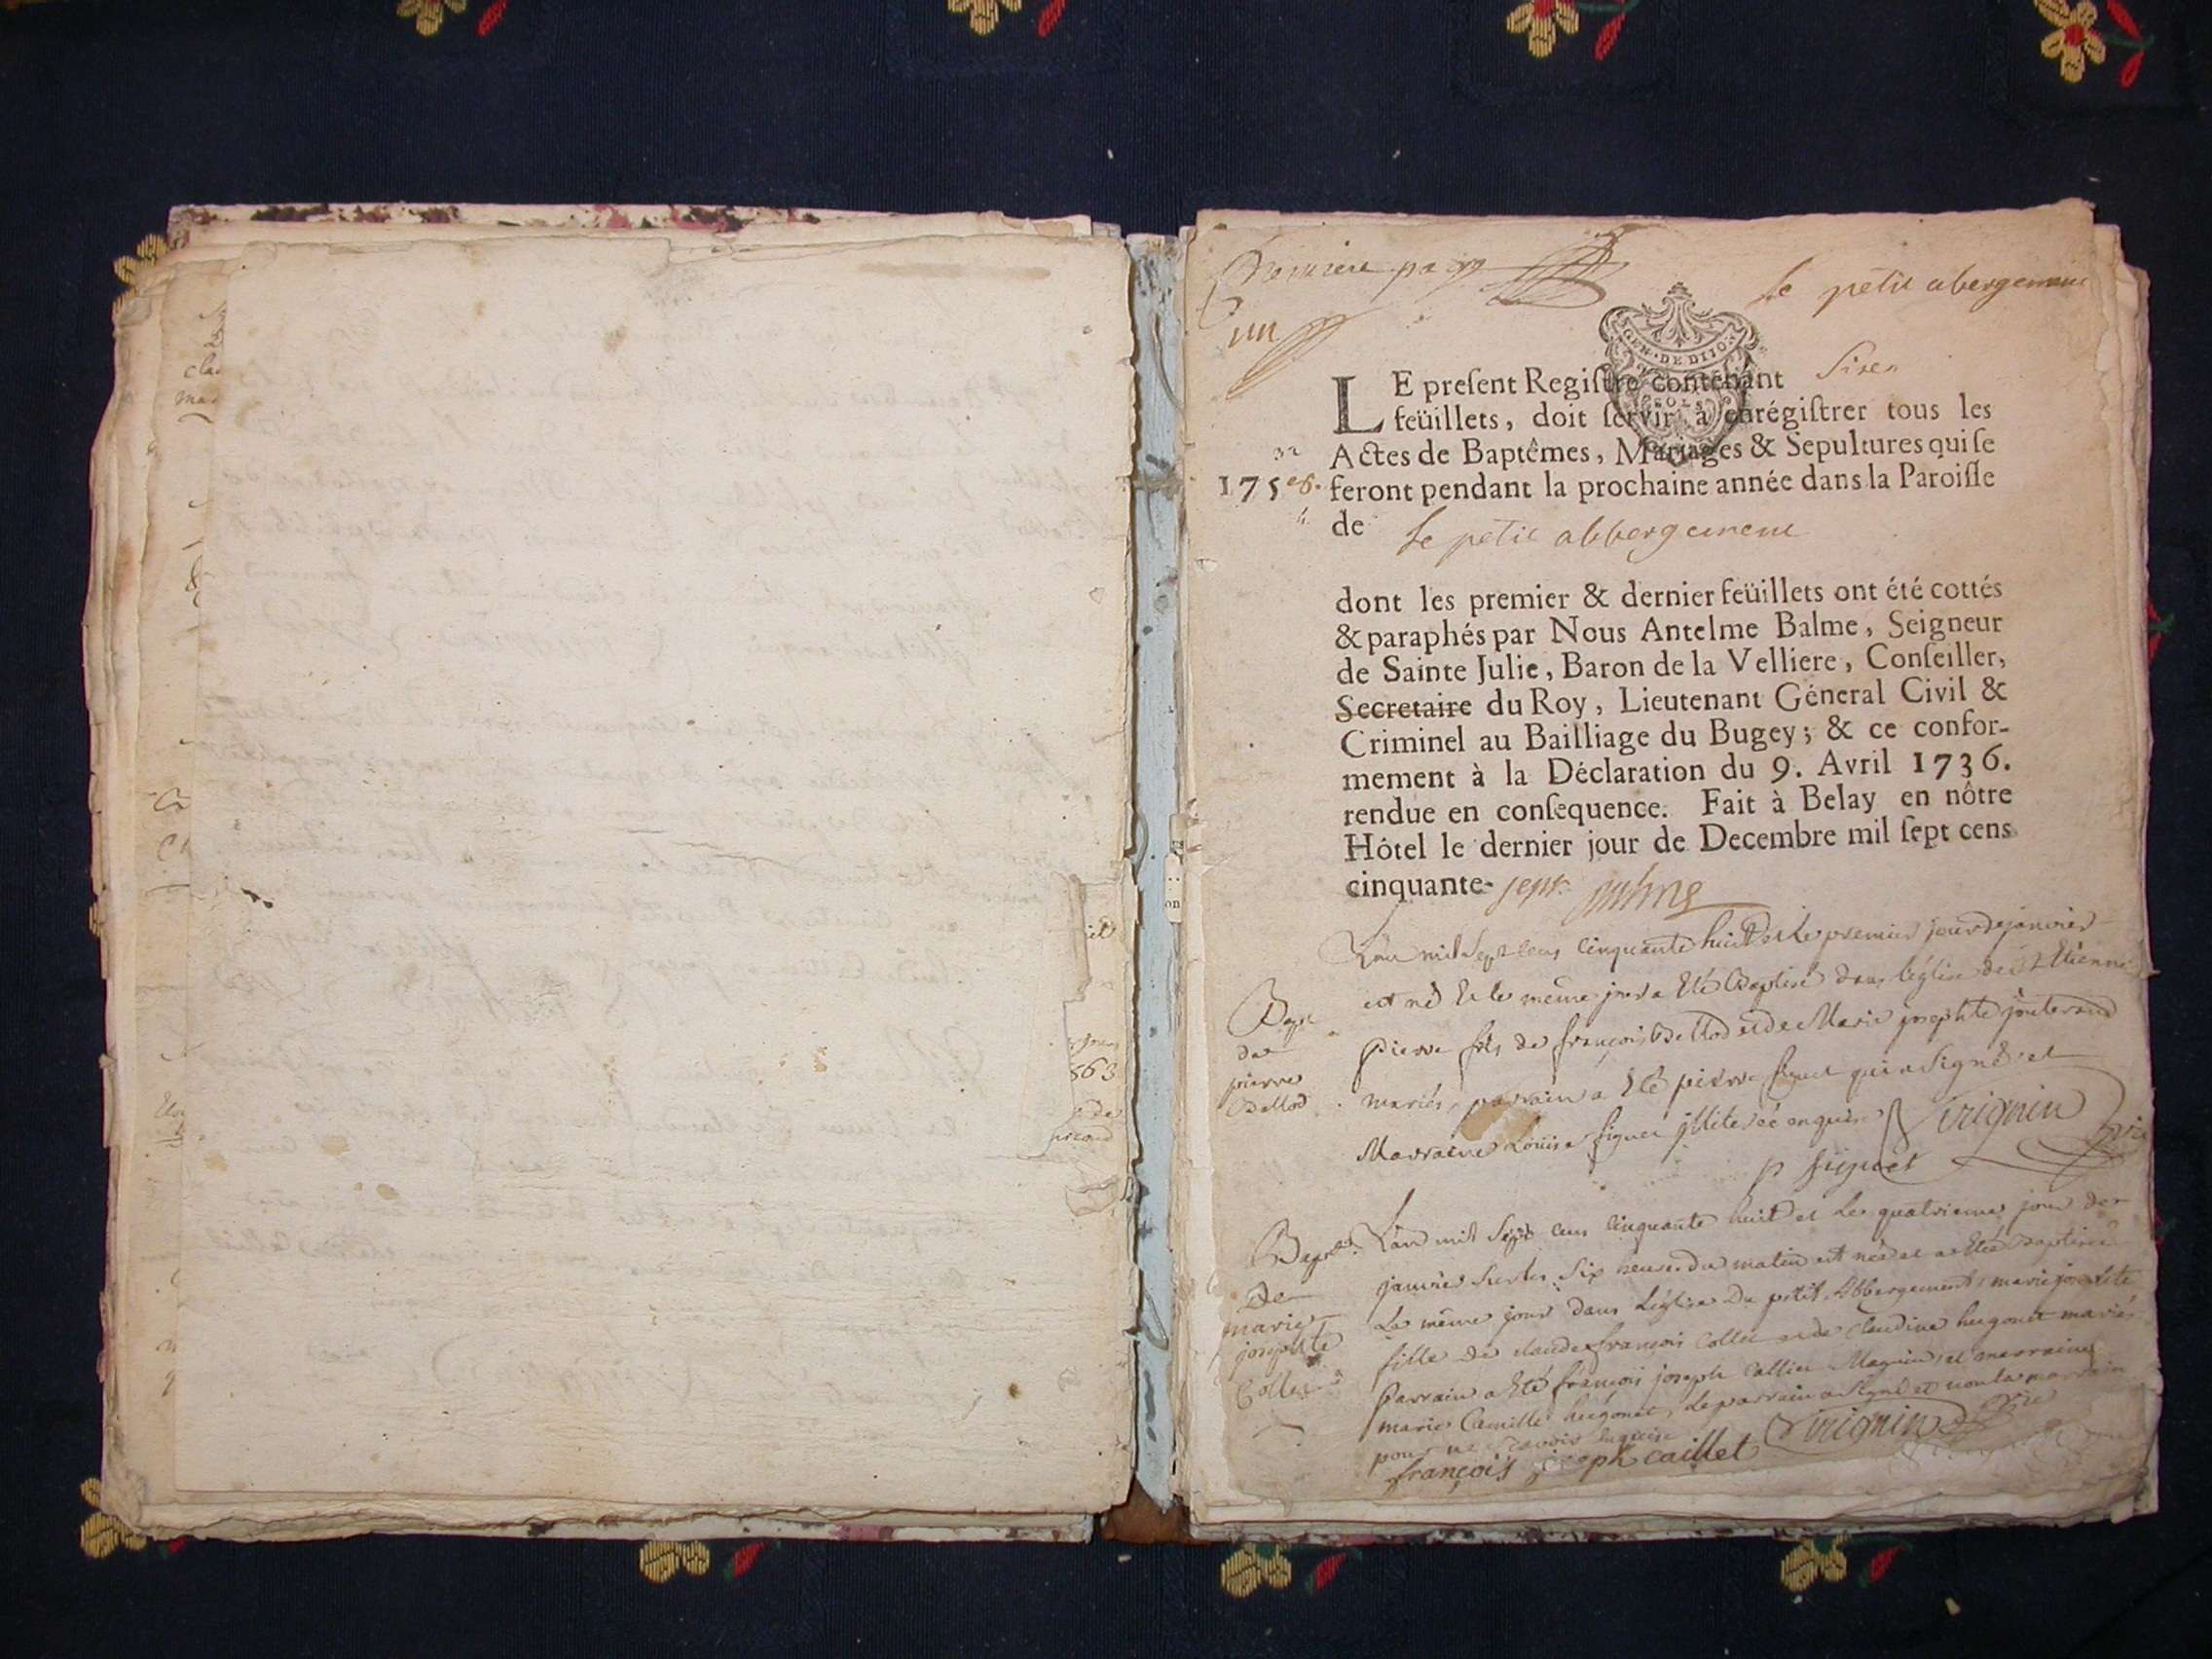 Premiere page
Le petit abergement
un
GEN. DE DIJON
LE preſent Regiſtre contenant Sixe
feüillets, doit ſervir à enrégiſtrer tous les
Actes de Baptêmes, Mariages & Sepultures qui ſe
1758. feront pendant la prochaine année dans la Paroiſſe
de Le petit abbergement
dont les premier & dernier feüillets ont été cottés
& paraphés par Nous Antelme Balme, Seigneur
de Sainte Julie, Baron de la Velliere, Conſeiller,
Secretaire du Roy, Lieutenant Géneral Civil &
Criminel au Bailliage du Bugey; & ce confor-
mement à la Déclaration du 9. Avril 1736.
rendue en conſequence. Fait à Belay en nôtre
Hôtel le dernier jour de Decembre mil ſept cens
cinquante- sept balme
L'an mil sept cens cinquante huit et le premier jour de janvier
est né et le même jour a été Baptisé dans l'église de St Etienne
pierre fils de françois Ballod et de Marie josephte jouterand
mariés, parrain a été pierre figuet qui a signé et
Marraine Louise figuet illiterée enquise Virignin
p figuet
Bapt
de
pierre
Ballod
Bapt L'an mil sept cens cinquante huit et le quatrieme jour de
janvier sur les six heures du matin est née et a été baptisée
Le même jour dans L'église Du petit Abbergement, marie josephte
fille de claude françois Collet et de claudine hugonet mariés
parrain a été françois joseph Callier Magnin, et marraine
marie Camille hugonet, le parrain a signé et non la marraine
pour ne sçavoir enquise
De
marie
josephte
Collet
françois joseph caillet Virignin